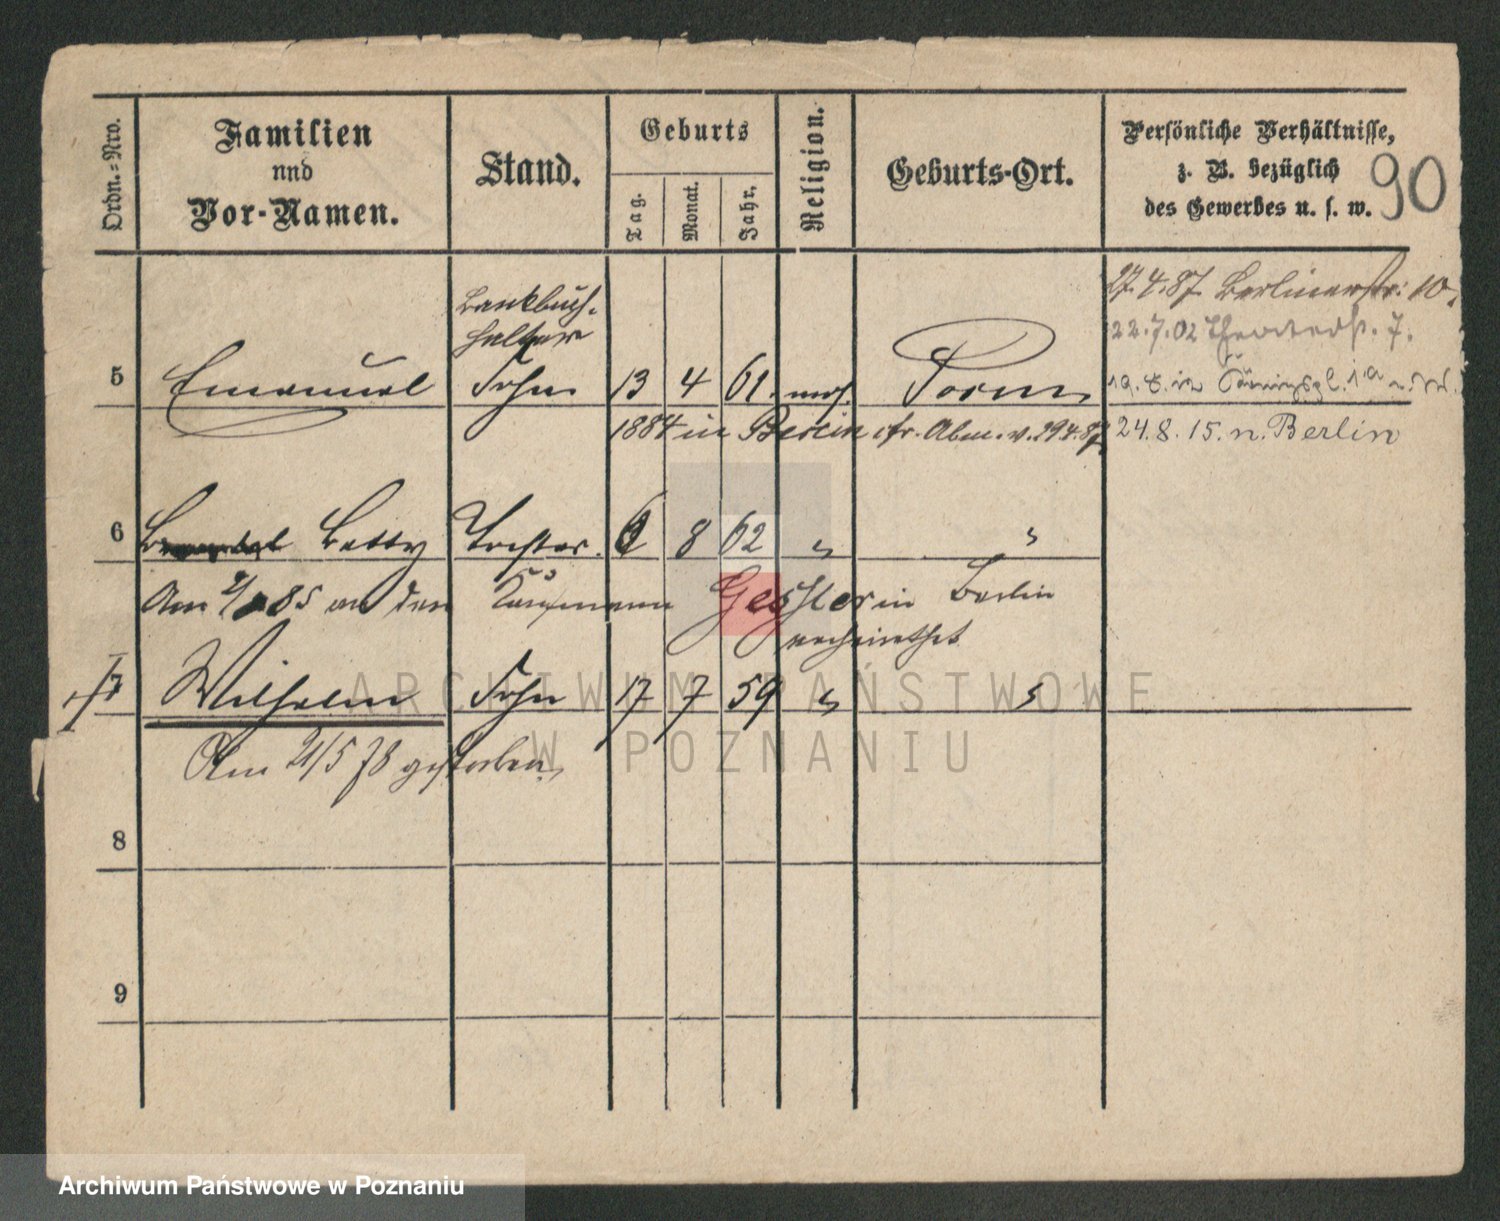 Ordn.=Nro.
Familien
und
Vor-Namen.
Stand.
Geburts
Tag.
Monat.
Jahr.
Religion.
Geburts-Ort.
Persönliche Verhältnisse,
z. B. bezüglich
des Gewerbes u. s. w.
90
27.4.87 Berlinerstr: 10.
22.7.02 Theaterstr. 7.
Bankbuch-
halter
5 Emanuel Sohn 13 4 61 mos. Posen
1884 in Berlin fr. Abm. v. 29.4.87
24.8.15. n. Berlin
6 Betty Tochter. 6 8 62 " "
Am 85 an den Kaufmann Gessler in Berlin
verheirathet
7 Wilhelm Sohn 17 7 59 " "
Am 21/5 78 gestorben.
8
9
ARCHIWUM PAŃSTWOWE
W POZNANIU
Archiwum Państwowe w Poznaniu